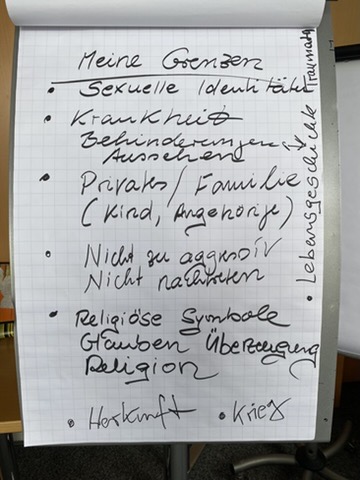 Meine Grenzen
• Sexuelle Identität
• Krankheit
Behinderungen
Aussehen
• Privates / Familie
(Kind, Angehörige)
• Nicht zu aggressiv
Nicht nachtreten
• Religiöse Symbole
Glauben Überzeugung
Religion
• Herkunft • Krieg
• Lebensgeschichte Traumata